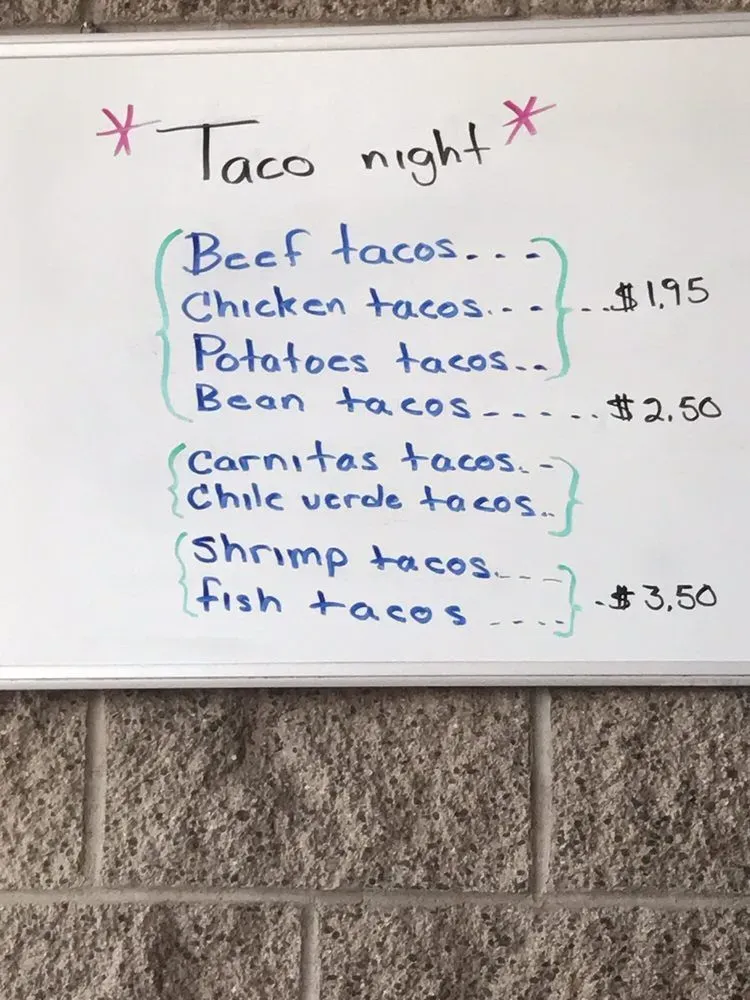 * Taco night *
Beef tacos...
Chicken tacos... ...$1.95
Potatoes tacos...
Bean tacos........$2.50
Carnitas tacos...
Chile verde tacos..
Shrimp tacos....
fish tacos .... .$3.50